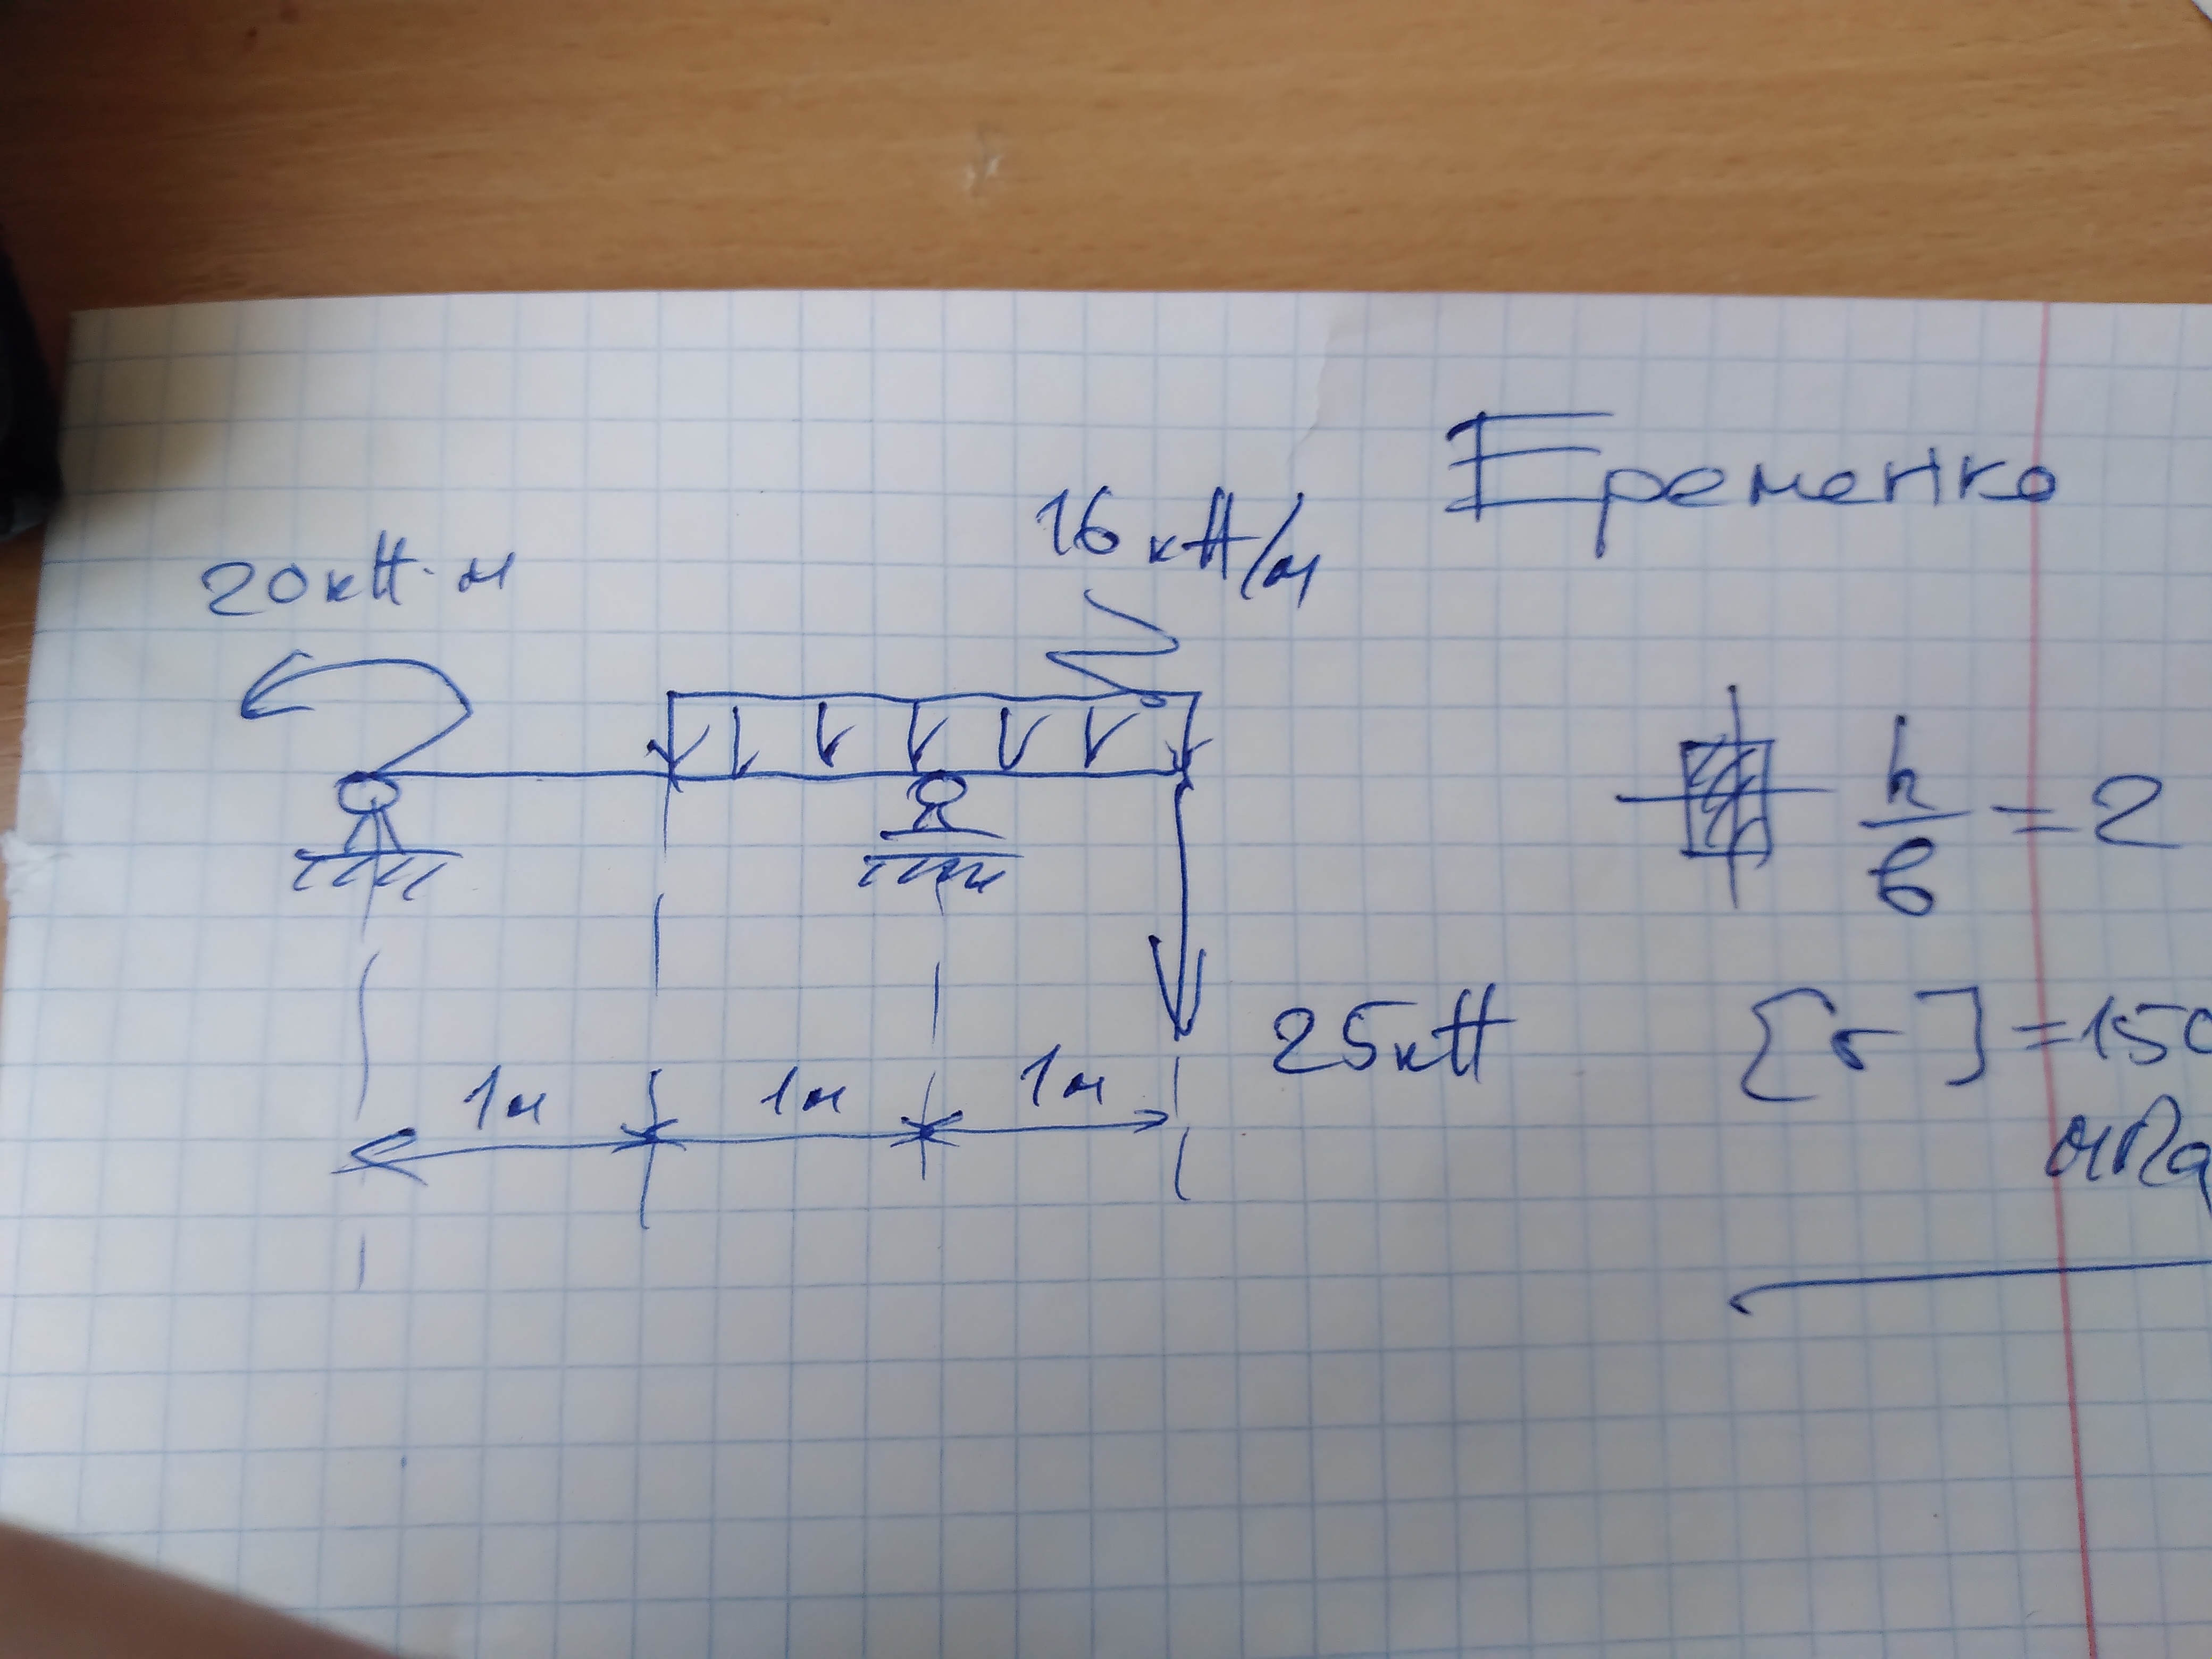 Еременко
16 кН/м
20кН·м
h/в = 2
25кН
[σ] = 150
МПа
1м 1м 1м